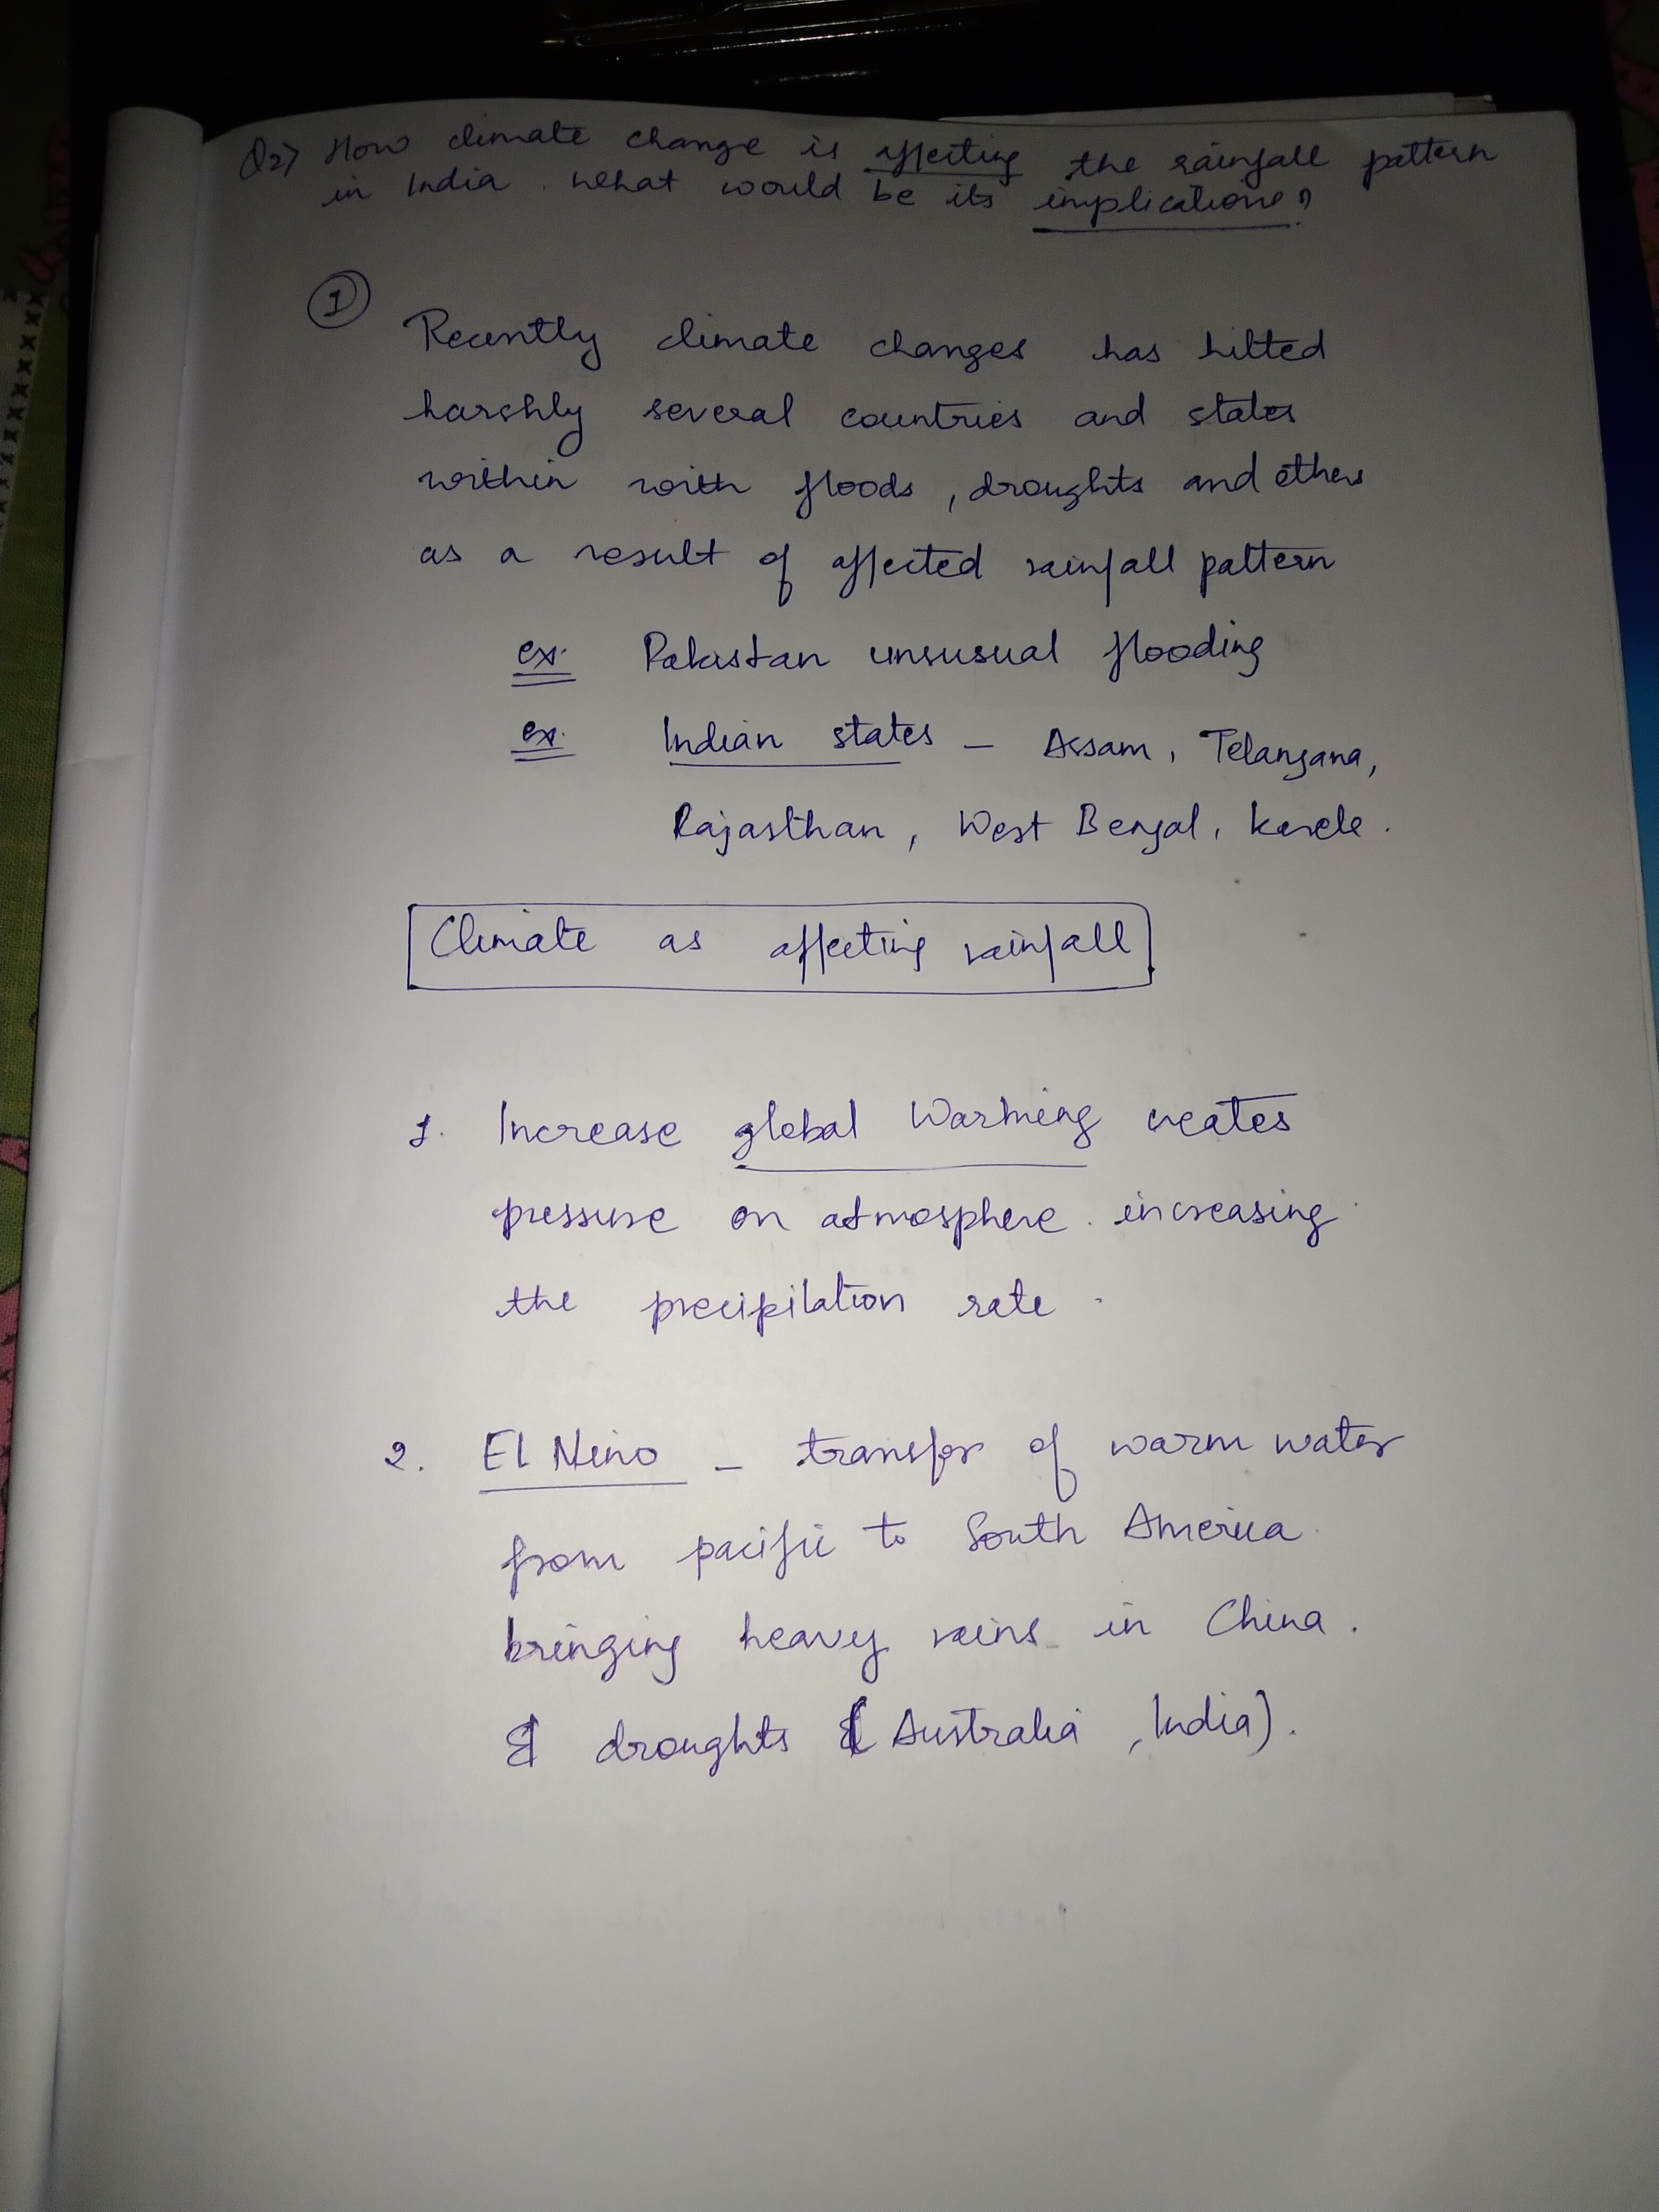 Q2) How climate change is affecting the rainfall pattern
in India. What would be its implications?
1
Recently climate changes has hitted
harshly several countries and states
within with floods, droughts and others
as a result of affected rainfall pattern
ex. Pakistan unsusual flooding
ex. Indian states - Assam, Telangana,
Rajasthan, West Bengal, Kerele.
Climate as affecting rainfall
1. Increase global Warming creates
pressure on atmosphere increasing
the precipitation rate.
2. El Nino - transfer of warm water
from pacific to South America
bringing heavy rains in China.
& droughts (Australia, India).